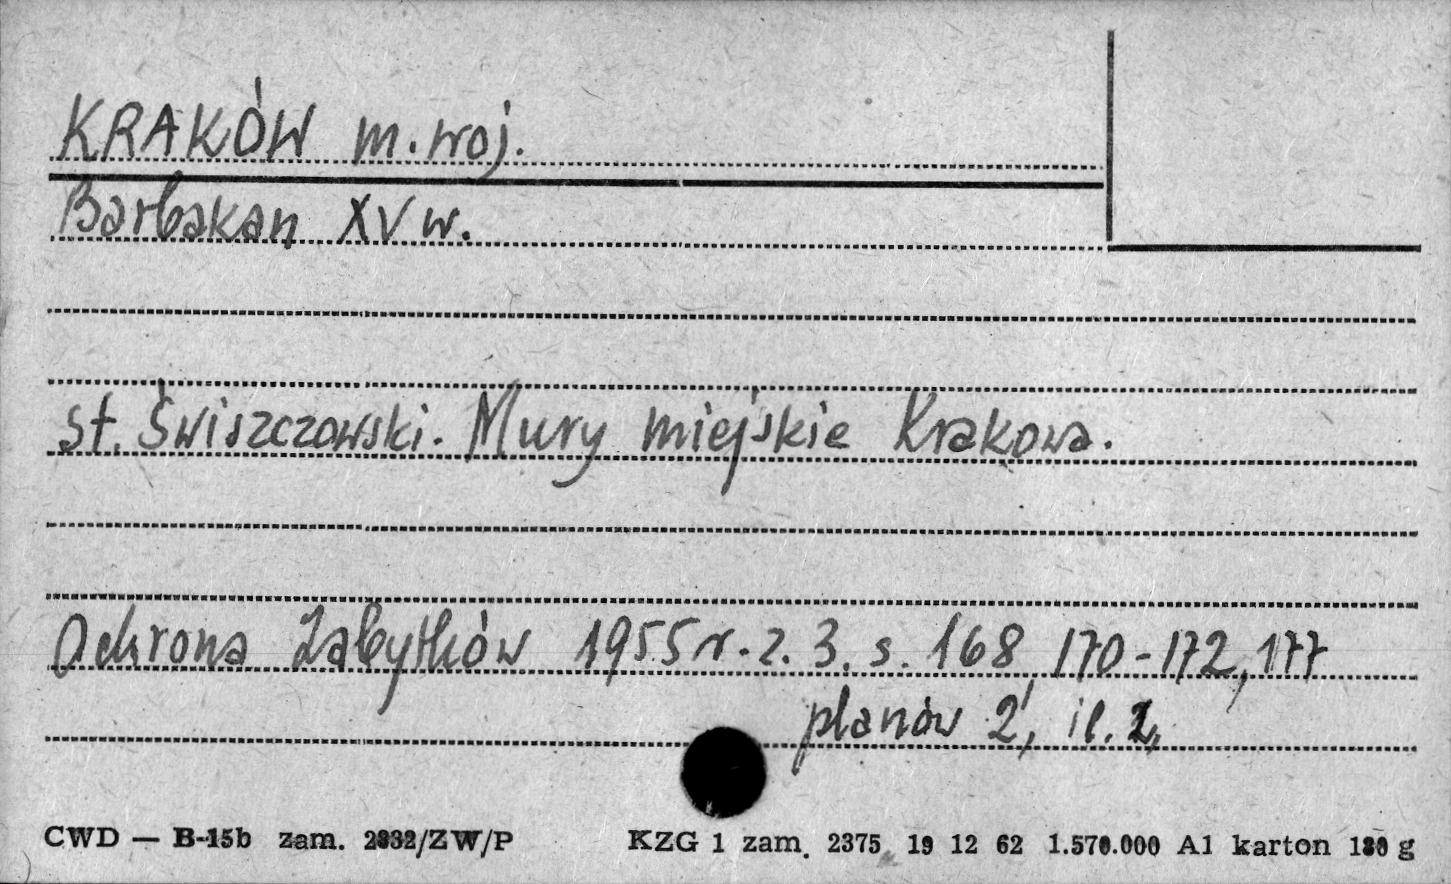 KRAKÓW m. woj.
Barbakan XV w.
St. Świszczowski. Mury miejskie Krakowa.
Ochrona Zabytków 1955 r. z. 3. s. 168, 170-172, 177
planów 2, il. 2,
CWD — B-15b zam. 2832/ZW/P KZG 1 zam. 2375 19 12 62 1.570.000 A1 karton 180 g